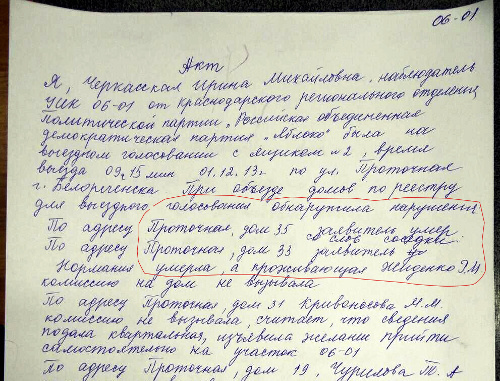 06-01
Акт
Я, Черкасская Ирина Михайловна, наблюдатель
УИК 06-01 от Краснодарского регионального отделения
политической партии "Российская объединенная
демократическая партия "Яблоко" была на
выездном голосовании с ящиком №2, время
выезда 09,15 мин 01.12.13г по ул. Проточная
г. Белореченска При объезде домов по реестру
для выездного голосования обнаружила нарушения
По адресу Проточная, дом 35 заявитель умер
со слов соседки.
По адресу Проточная, дом 33 заявитель
умерла, а проживающая Жиденко Э.М
комиссию на дом не вызывала
По адресу Проточная, дом 31 Кривоносова М.М.
комиссию не вызывала, считает, что сведения
подала квартальная, изъявила желание прийти
самостоятельно на участок 06-01
По адресу Проточная, дом 19, Чурилова Т. А